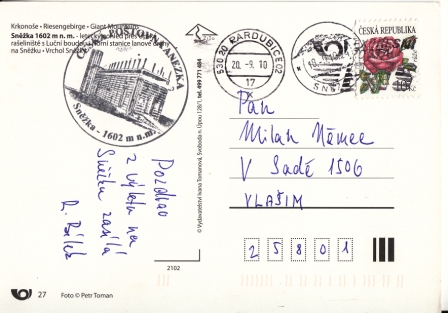 Krkonoše • Riesengebirge • Giant Mountains
Sněžka 1602 m n. m. - letecký pohled přes
rašeliniště s Luční boudou a horní stanice lanové dráhy
na Sněžku • Vrchol Sněžky
ČESKÁ POŠTOVNA ANEŽKA
Sněžka - 1602 m n.m.
530 20 PARDUBICE 02
20. -9. 10
17
ČESKÁ REPUBLIKA
Pozdrav
z výletu na
Sněžku zasílá
© Vydavatelství Ivana Tomanová, Svoboda n. Úpou 128/1, tel. 499 771 484
2102
Pan
Milan Němec
V Sadě 1506
VLAŠIM
25801
27 Foto © Petr Toman